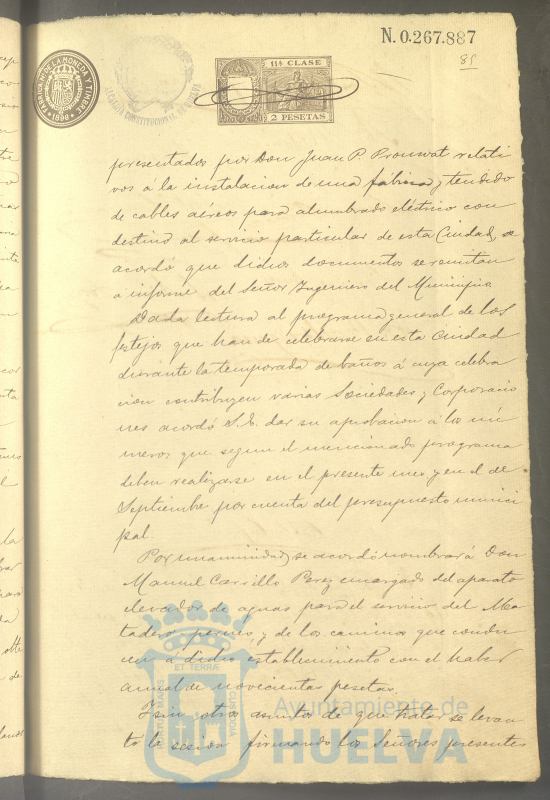 N. 0.267.887
85
FABRICA NL DE LA MONEDA Y TIMBRE
1898
11ª CLASE
2 PESETAS
presentados por Don Juan P. relati
vos á la instalacion de una fábrica y tendido
de cables aéreos para alumbrado eléctrico con
destino al servicio particular de esta Ciudad, se
acordó que dichos documentos se remitan
a informe del Señor Ingeniero del Municipio
Dada lectura al programa general de los
festejos que han de celebrarse en esta Ciudad
durante la temporada de baños á cuya celebra
cion contribuyen varias Sociedades y Corporacio
nes acordó S. E. dar su aprobacion á los nú
meros que segun el mencionado programa
deben realizarse en el presente mes y en el de
Septiembre por cuenta del presupuesto munici
pal.
Por unanimidad se acordó nombrar á Don
Manuel Carrillo Perez encargado del aparato
elevador de aguas para el servicio del Ma
tadero y de los caminos que condu
cen á dicho establecimiento con el haber
anual de novecientas pesetas.
I sin otros asuntos de que tratar se levan
to la sesion firmando los Señores presentes
PORTUS MARIS ET TERRÆ CUSTODIA
Ayuntamiento de
HUELVA